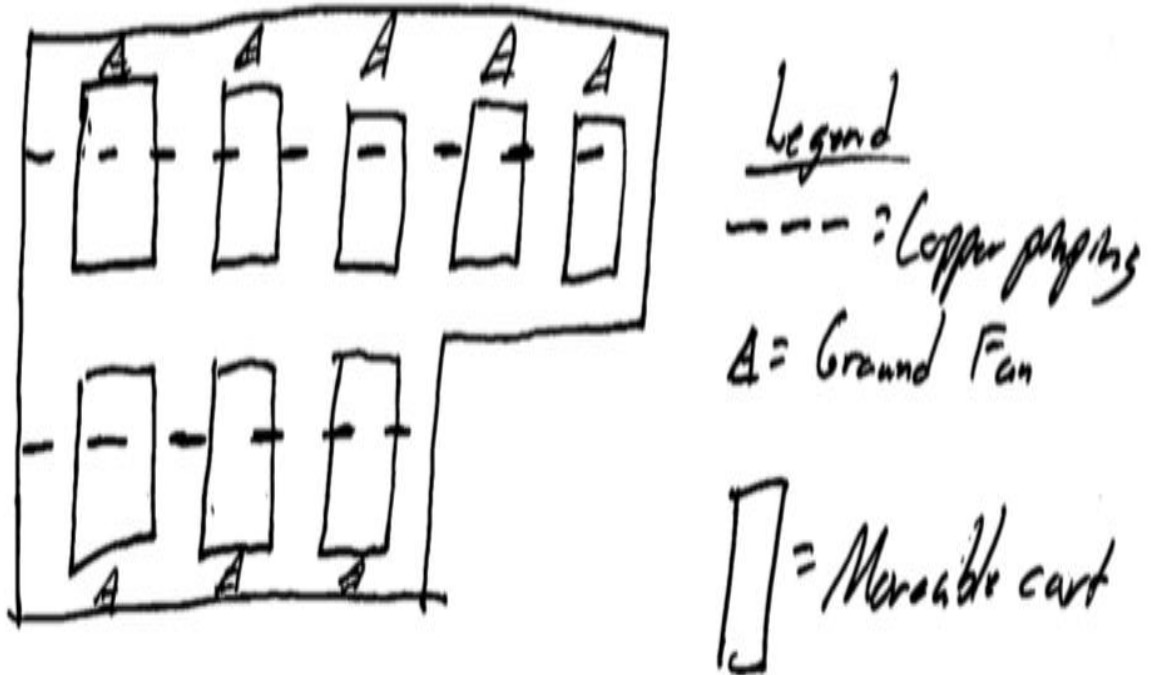 Legend
--- = Copper piping
A = Ground Fan
= Moveable cart